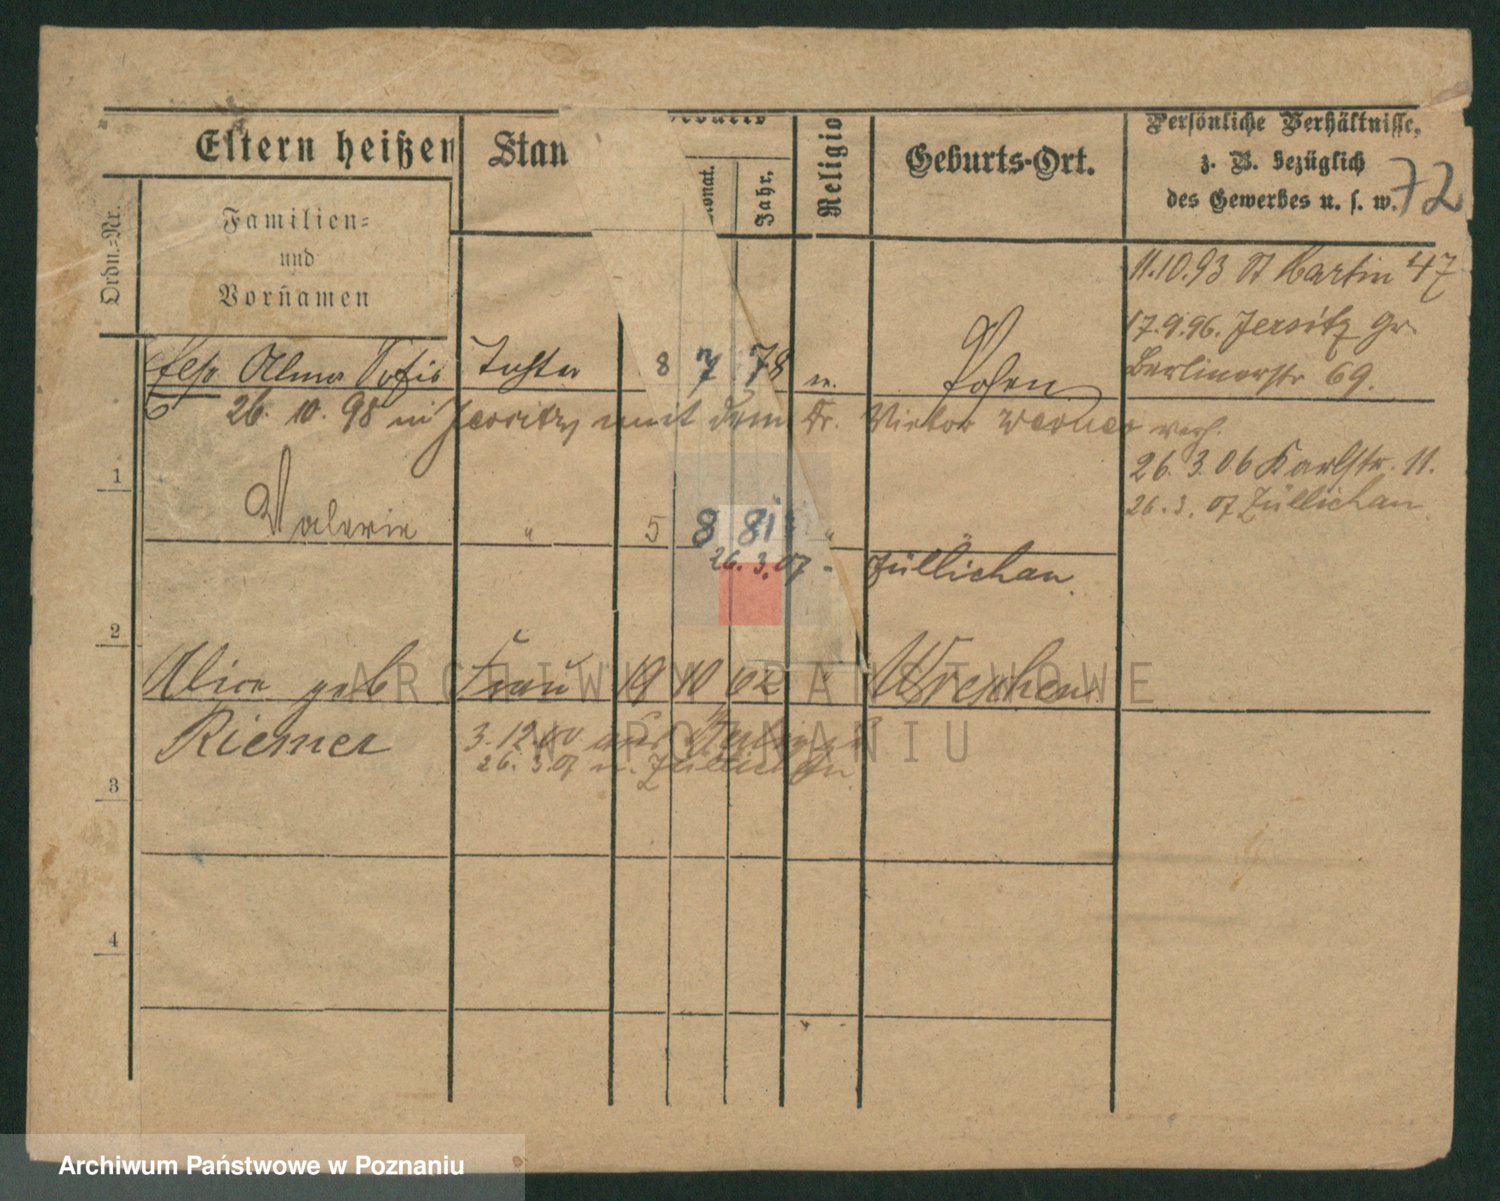 Eltern heißen
Stan
Monat.
Jahr.
Religio
Geburts-Ort.
Persönliche Verhältnisse,
z. B. bezüglich
des Gewerbes u. s. w.
72
Ordn.-Nr.
Familien-
und
Vornamen
11.10.93 St Martin 47
17.9.96. Jersitz Gr.
Berlinerstr 69.
Alma Sofie Tochter 8 7 78 Posen
26. 10. 98 in Jersitz mit dem Dr. Victor Werner verh.
26. 3. 06 Karlstr. 11.
26. 3. 07 Züllichau
1
Valerie " 5 8 81 " "
26. 3. 07 - Züllichau
2
Alice geb Frau 19 10 62 " Wreschen
Riemer
3.12.00 aus
26. 3.07 n. Züllichau
3
4
ARCHIWUM PAŃSTWOWE
W POZNANIU
Archiwum Państwowe w Poznaniu